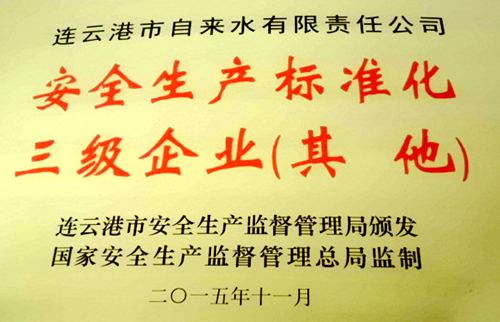 连云港市自来水有限责任公司
安全生产标准化
三级企业(其 他)
连云港市安全生产监督管理局颁发
国家安全生产监督管理总局监制
二〇一五年十一月